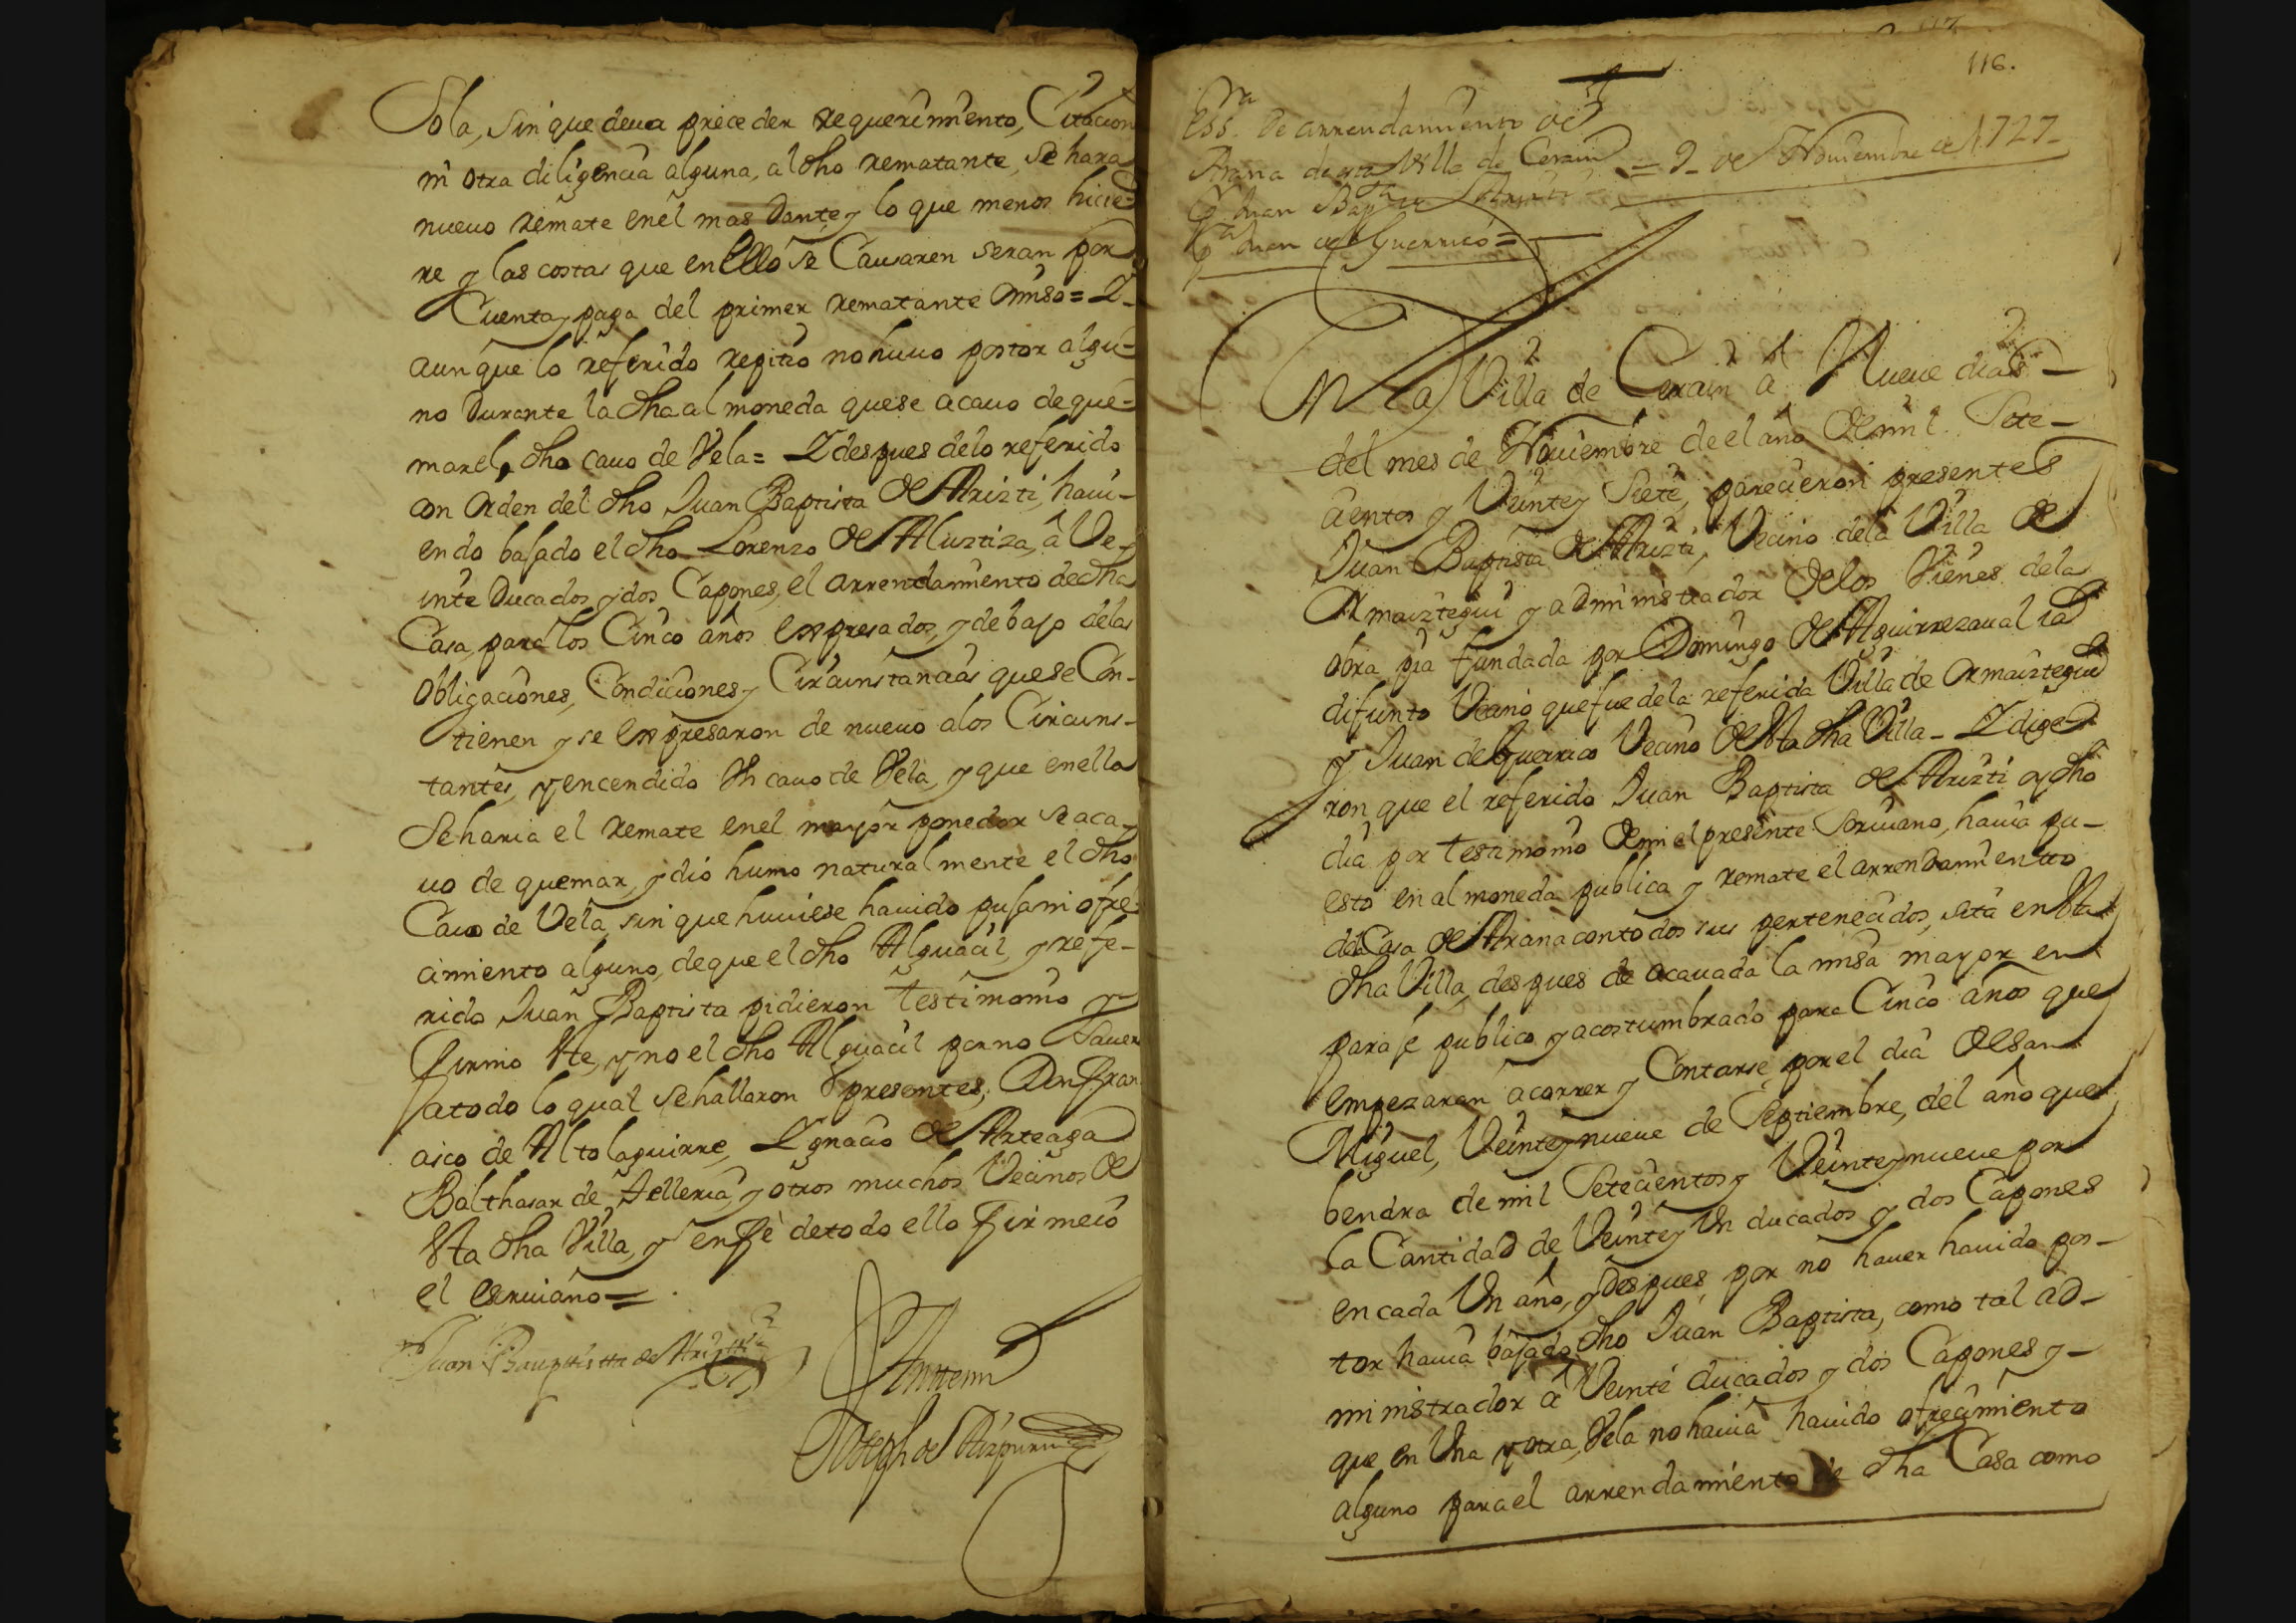 Sola, sin que deua preceder requerimiento, Citacion
ni otra diligencia alguna, al dho rematante, se hara
nueuo remate en el mas Dante, y lo que menos hicie-
re y las costas que en Ello se Causaren seran por
Cuenta y paga del primer rematante Omiso = Y
aunque lo referido repitio no huuo postor algu-
no Durante la dha almoneda que se acauo de que-
mar el dho cauo de Vela = Y despues delo referido
con orden del dho Juan Baptista de Arizti, haui-
endo bajado el dho Lorenzo de Aluztiza, â Ve-
inte Ducados y dos Capones, el arrendamiento de dha
Casa, para los Cinco años Expresados, y debajo delas
obligaciones, Condiciones y Circunstancias que se Con-
tienen y se Expresaron de nueuo alos Circuns-
tantes, y encendido Un cauo de Vela, y que en ella
Se haria el remate en el mayor ponedor se aca-
uo de quemar, y dió humo naturalmente el dho
Cauo de Vela, sin que huuiese hauido puja ni ofre-
cimiento alguno, de que el dho Alguacil, y refe-
rido Juan Baptista pidieron testimonio y
firmo Este, y no el dho Alguacil por no Sauer
atodo lo qual se hallaron presentes, Don Fran
cisco de Altolaguirre, Ygnacio de Arteaga
Balthasar de Telleria, y otros muchos Vecinos de
Esta dha Villa, y en fè de todo ello firmé io
el escriuano =
Juan Bauptista de Arizti
Antemi
Joseph de Aizpuru
116.
Essra. De arrendamiento de
Arana de esta Villa de Cerain = 9 de Nouiembre de 1727
Juan Bapta de Arizti
Juan de Guerrico =
En la Villa de Cerain â Nueue dias
del mes de Nouiembre de el año de mil Sete-
cientos y Veinte y Siete, parecieron presentes
Juan Baptista de Arizti, Vecino dela Villa de
Ormaiztegui y administrador delos Vienes dela
obra pia fundada por Domingo de Aguirrezaual ia
difunto Vecino que fue dela referida Villa de Ormaiztegui
y Juan de Guerrico Vecino de Esta dha Villa - Y dixe-
ron que el referido Juan Baptista de Arizti oy dho
dia por testimonio de mi el presente Scriuano, hauia pu-
esto en almoneda publica y remate el arrendamiento
dela Casa de Arana con todos sus pertenecidos, sita en Esta
dha Villa, despues de acauada la misa mayor en
paraje publico y acostumbrado para Cinco años que
empezaran a correr y Contarse, por el dia de San
Miguel, Veinte y nueue de Septiembre, del año que
bendra de mil Setecientos y Veinte y nueue por
la Cantidad de Veinte y Un ducados y dos Capones
en cada Un año, y despues, por no hauer hauido pos-
tor hauia bajado dho Juan Baptista, como tal ad-
ministrador â Veinte ducados y dos Capones y
que en Una y otra Vela no hauia hauido ofrecimiento
alguno para el arrendamiento de dha Casa como